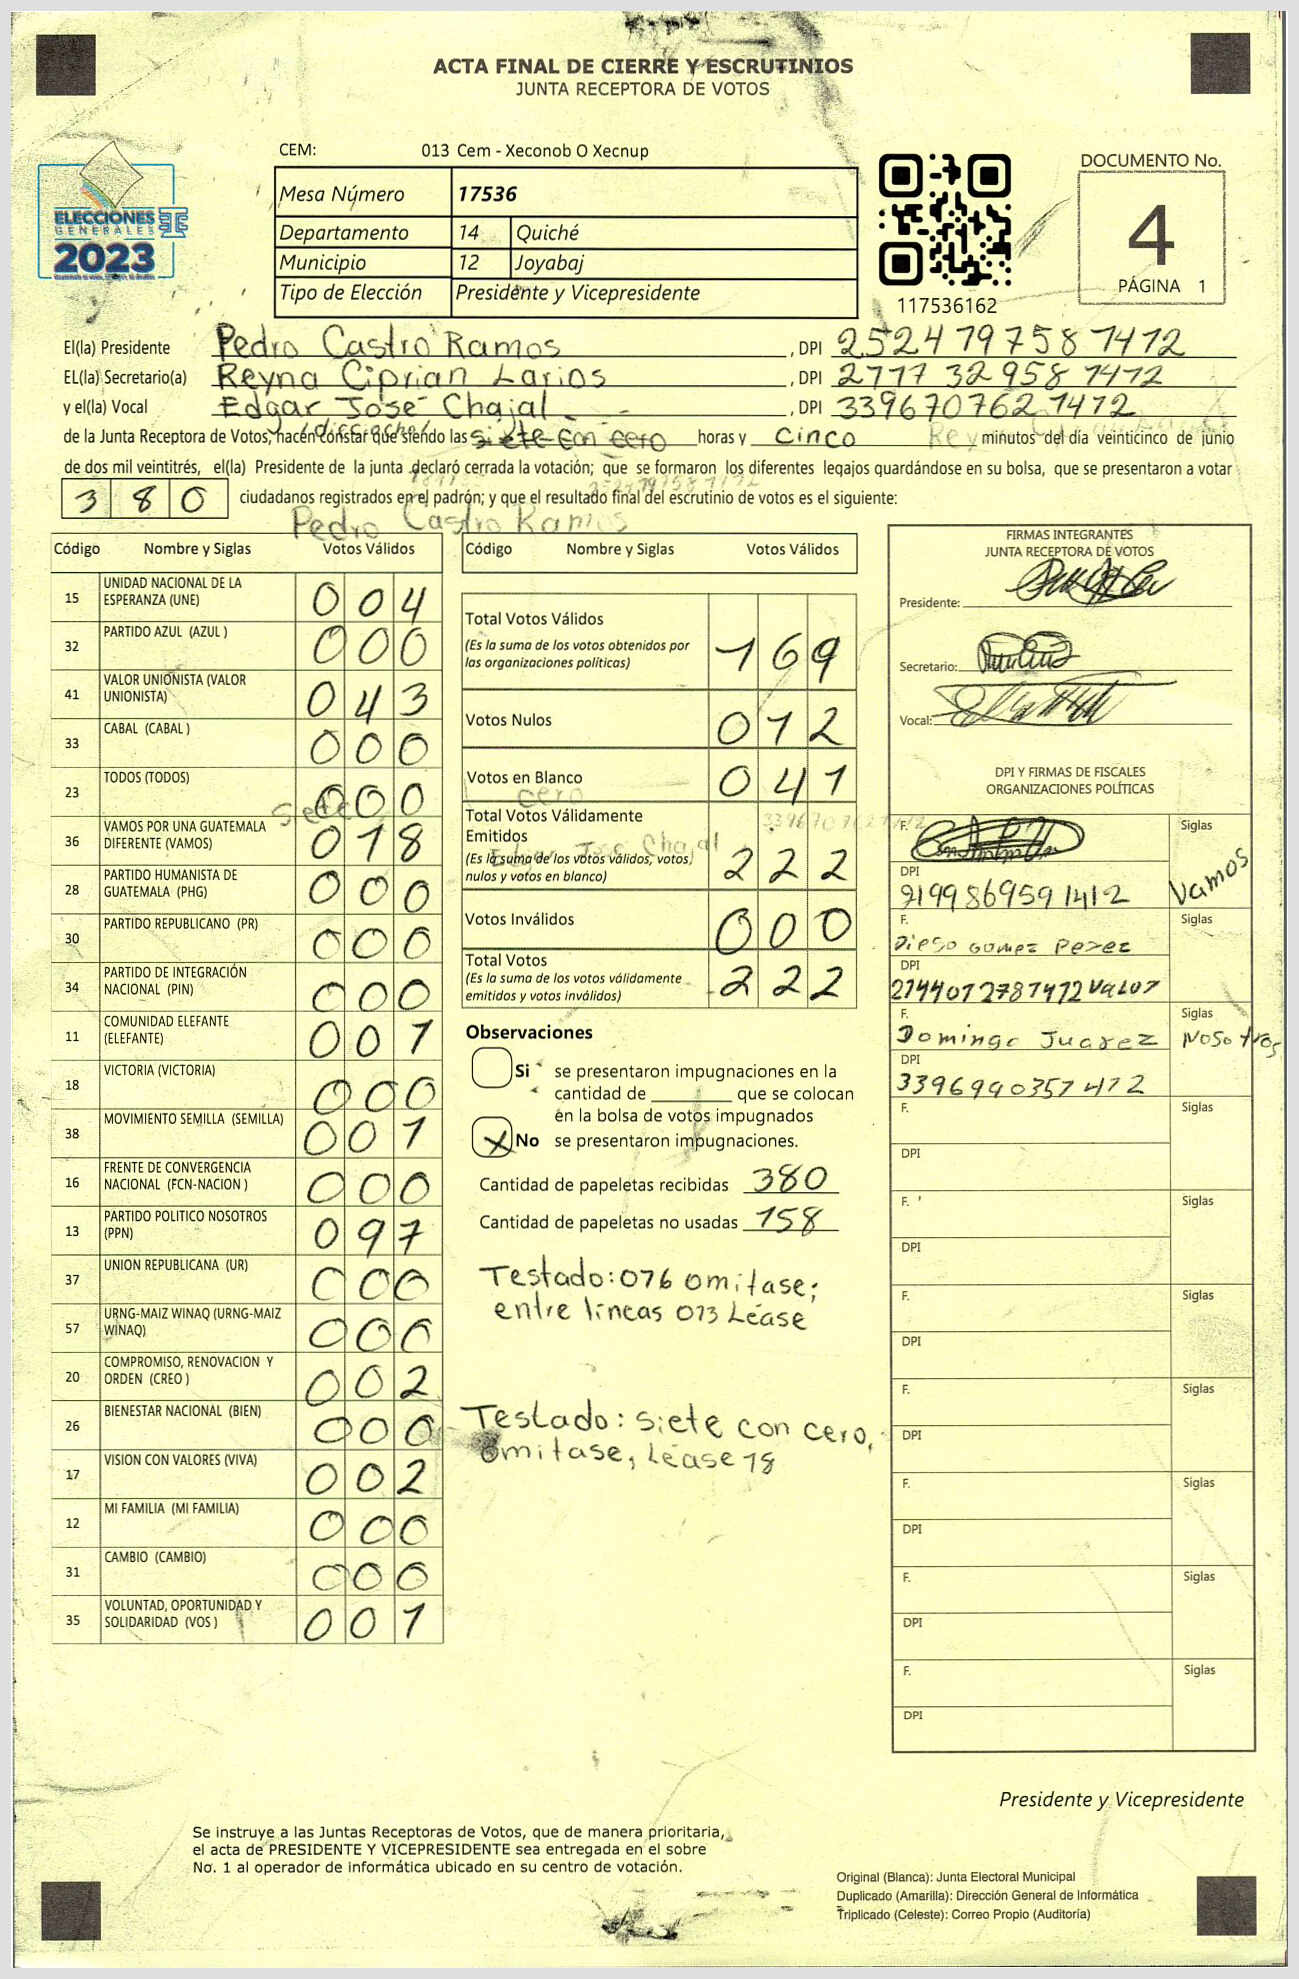 ACTA FINAL DE CIERRE Y ESCRUTINIOS
JUNTA RECEPTORA DE VOTOS
CEM: 013 Cem - Xeconob O Xecnup
Mesa Número 17536
Departamento 14 Quiché
Municipio 12 Joyabaj
Tipo de Elección Presidente y Vicepresidente
ELECCIONES
GENERALES
2023
117536162
DOCUMENTO No.
4
PÁGINA 1
El(la) Presidente Pedro Castro Ramos , DPI 2524 79758 1412
EL(la) Secretario(a) Reyna Ciprian Larios , DPI 2777 32958 1412
y el(la) Vocal Edgar José Chajal , DPI 339670762 1412
dieciocho
de la Junta Receptora de Votos, hacen constar que siendo las siete con cero horas y cinco minutos del día veinticinco de junio
de dos mil veintitrés, el(la) Presidente de la junta declaró cerrada la votación; que se formaron los diferentes legajos quardándose en su bolsa, que se presentaron a votar
380 ciudadanos registrados en el padrón; y que el resultado final del escrutinio de votos es el siguiente:
Pedro Castro Ramos
Código Nombre y Siglas Votos Válidos
15 UNIDAD NACIONAL DE LA ESPERANZA (UNE) 004
32 PARTIDO AZUL (AZUL ) 000
41 VALOR UNIONISTA (VALOR UNIONISTA) 043
33 CABAL (CABAL ) 000
23 TODOS (TODOS) 000
36 VAMOS POR UNA GUATEMALA DIFERENTE (VAMOS) 018
28 PARTIDO HUMANISTA DE GUATEMALA (PHG) 000
30 PARTIDO REPUBLICANO (PR) 000
34 PARTIDO DE INTEGRACIÓN NACIONAL (PIN) 000
11 COMUNIDAD ELEFANTE (ELEFANTE) 001
18 VICTORIA (VICTORIA) 000
38 MOVIMIENTO SEMILLA (SEMILLA) 001
16 FRENTE DE CONVERGENCIA NACIONAL (FCN-NACION ) 000
13 PARTIDO POLITICO NOSOTROS (PPN) 097
37 UNION REPUBLICANA (UR) 000
57 URNG-MAIZ WINAQ (URNG-MAIZ WINAQ) 000
20 COMPROMISO, RENOVACION Y ORDEN (CREO ) 002
26 BIENESTAR NACIONAL (BIEN) 000
17 VISION CON VALORES (VIVA) 002
12 MI FAMILIA (MI FAMILIA) 000
31 CAMBIO (CAMBIO) 000
35 VOLUNTAD, OPORTUNIDAD Y SOLIDARIDAD (VOS ) 001
Código Nombre y Siglas Votos Válidos
Total Votos Válidos
(Es la suma de los votos obtenidos por
las organizaciones políticas) 169
Votos Nulos 012
Votos en Blanco 041
Total Votos Válidamente
Emitidos
(Es la suma de los votos válidos, votos
nulos y votos en blanco) 222
Votos Inválidos 000
Total Votos
(Es la suma de los votos válidamente
emitidos y votos inválidos) 222
Observaciones
Si se presentaron impugnaciones en la
cantidad de ________ que se colocan
en la bolsa de votos impugnados
X No se presentaron impugnaciones.
Cantidad de papeletas recibidas 380
Cantidad de papeletas no usadas 158
Testado: 076 omitase;
entre lineas 013 Léase
Testado: siete con cero,
omitase, Léase 18
FIRMAS INTEGRANTES
JUNTA RECEPTORA DE VOTOS
Presidente:
Secretario:
Vocal:
DPI Y FIRMAS DE FISCALES
ORGANIZACIONES POLÍTICAS
F. Siglas
DPI
9199869591412 Vamos
F. Siglas
Diego Gomez Perez
DPI
2144012781412 Valor
F. Siglas
Domingo Juarez Nosotros
DPI
3396940351412
F. Siglas
DPI
F. Siglas
DPI
F. Siglas
DPI
F. Siglas
DPI
F. Siglas
DPI
F. Siglas
DPI
F. Siglas
DPI
Presidente y Vicepresidente
Se instruye a las Juntas Receptoras de Votos, que de manera prioritaria,
el acta de PRESIDENTE Y VICEPRESIDENTE sea entregada en el sobre
No. 1 al operador de informática ubicado en su centro de votación.
Original (Blanca): Junta Electoral Municipal
Duplicado (Amarilla): Dirección General de Informática
Triplicado (Celeste): Correo Propio (Auditoría)